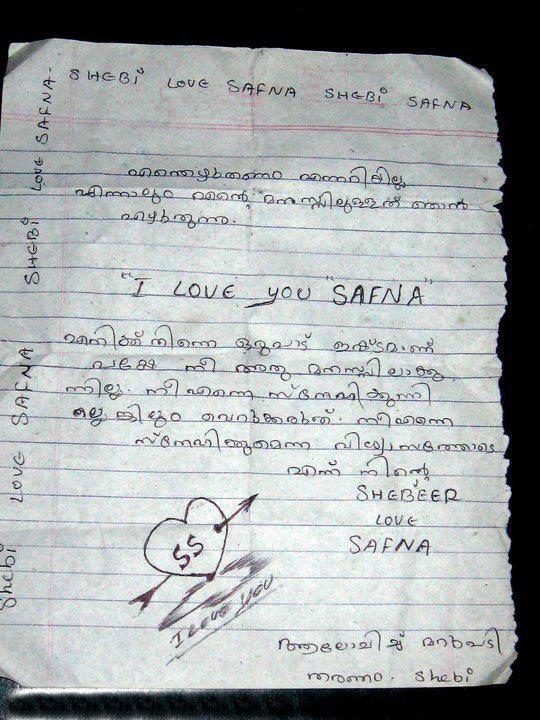 SHEBi LOVE SAFNA SHEBi SAFNA
എന്തെഴുതണം എന്നറിയില്ല
എന്നാലും എന്റെ മനസ്സിലുള്ളത് ഞാൻ
എഴുതുന്നു.
"I LOVE YOU "SAFNA"
എനിക്ക് നിന്നെ ഒരുപാട് ഇഷ്ടമാണ്
പക്ഷേ നീ അതു മനസ്സിലാക്കു
ന്നില്ല. നീ എന്നെ സ്നേഹിക്കുന്നി
ല്ലെങ്കിലും വെറുക്കരുത്. നീ എന്നെ
സ്നേഹിക്കുമെന്ന വിശ്വാസത്തോടെ
എന്ന് നിന്റെ
SHEBEER
LOVE
SAFNA
SS
I LOVE YOU
ആലോചിച്ച് മറുപടി
തരണം. Shebi
Shebi LOVE SAFNA SHEBi LOVE SAFNA-